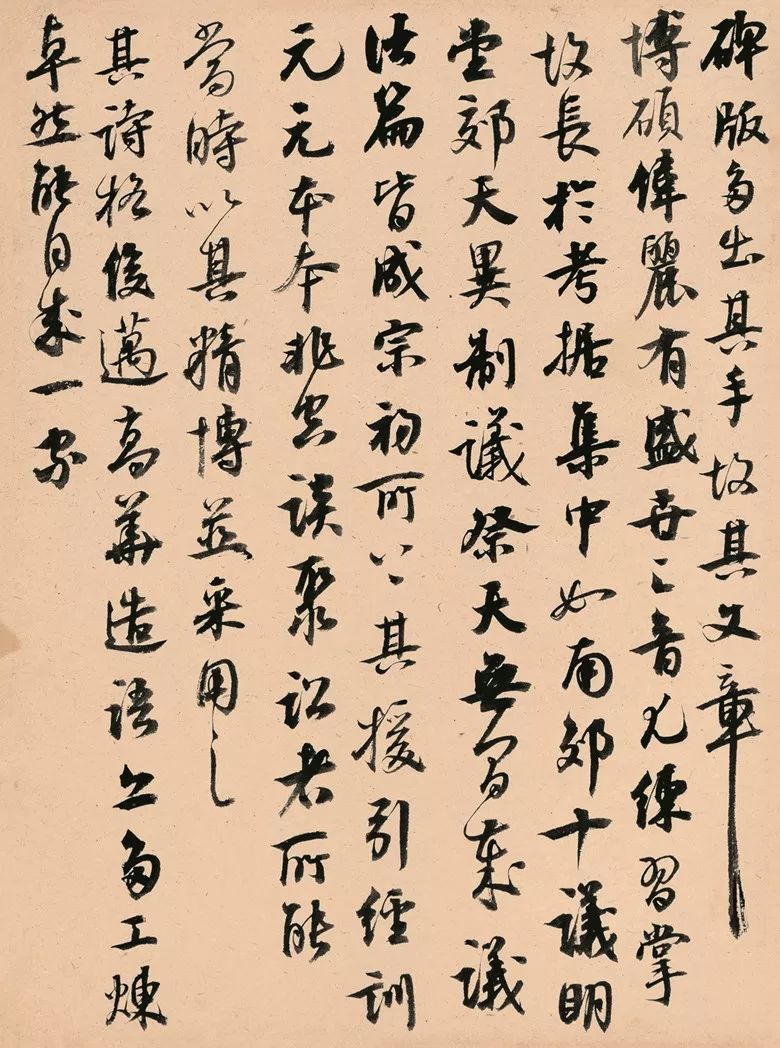 碑版多出其手故其文章
博碩偉麗有盛世之音尤練習掌
故長於考据集中如南郊十議明
堂郊天異制議祭天無間歲議
諸篇皆成宗初所上其援引經訓
元元本本非空談聚訟者所能
當時以其精博並采用之
其詩格俊邁高華造語亦多工煉
卓然能自成一家